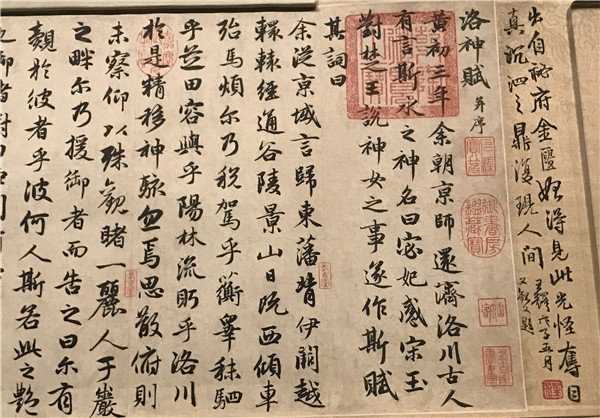 出自秘府金匱始得見此光怪奪目
真沉泗之鼎復現人間
戊子五月
洛神賦 并序
黄初三年余朝京師還濟洛川古人
有言斯水之神名曰宓妃感宋玉
對楚王說神女之事遂作斯賦
其詞曰
余從京域言歸東藩背伊闕越
轘轅經通谷陵景山日既西傾車
殆馬煩尔乃税駕乎蘅皋秣駟
乎芝田容與乎陽林流眄乎洛川
於是精移神駭忽焉思散俯則
未察仰以殊觀睹一麗人于巖
之畔尔乃援御者而告之曰尔有
覿於彼者乎彼何人斯若此之艷
也御者對曰
御書房鑑藏寶